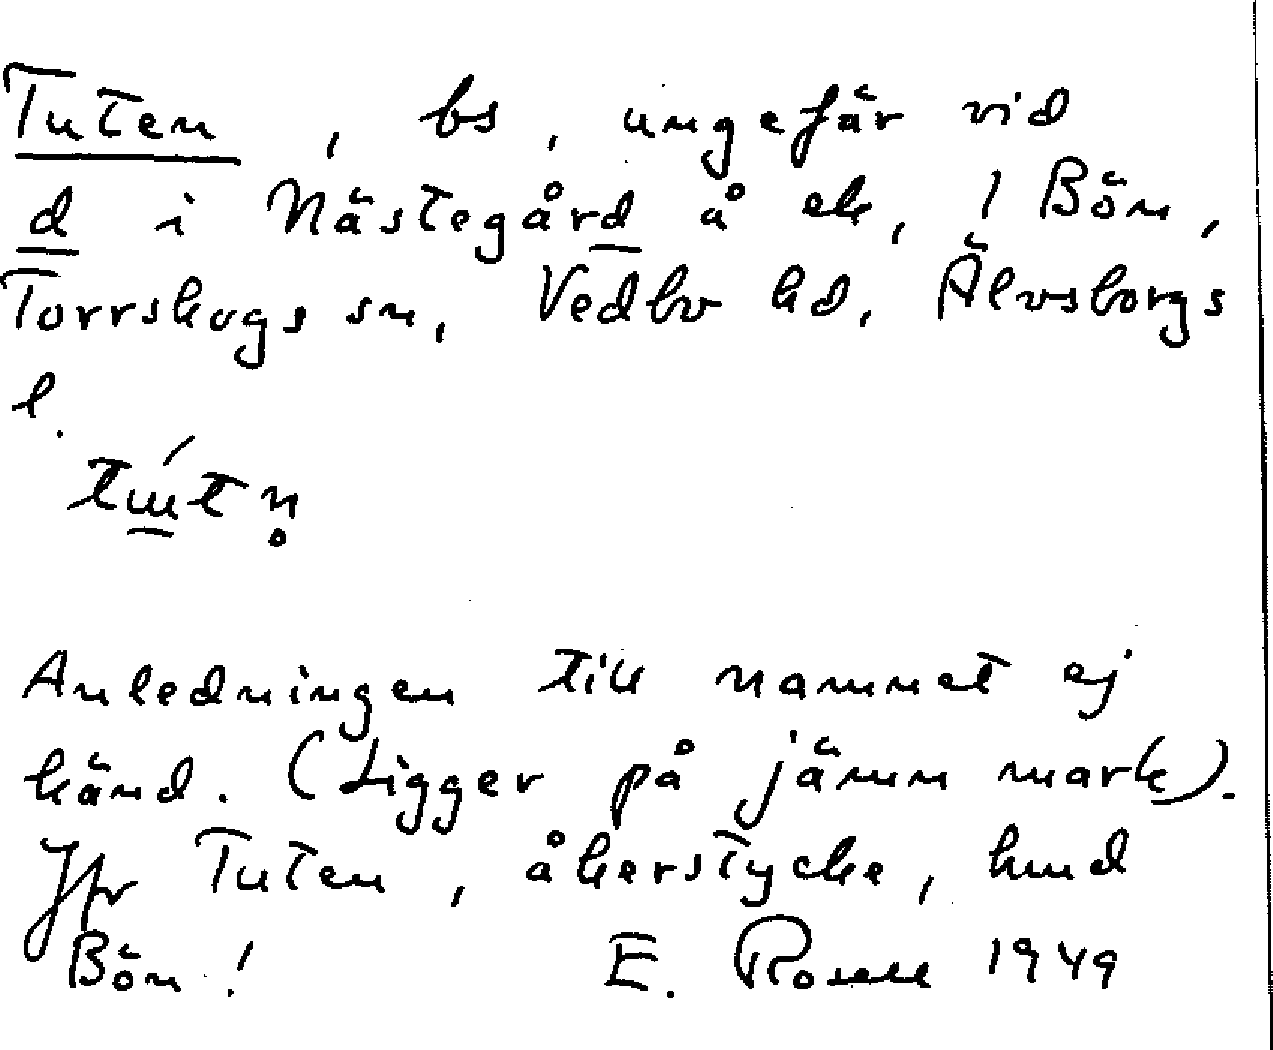 Tuten, bs, ungefär vid
d i Nästegård å ek, 1 Bön,
Torrskogs sn, Vedbo hd, Älvsborgs
l.
Anledningen till namnet ej
känd. (Ligger på jämn mark).
Jfr Tuten, åkerstycke, hmd
Bön! E. Rosell 1949